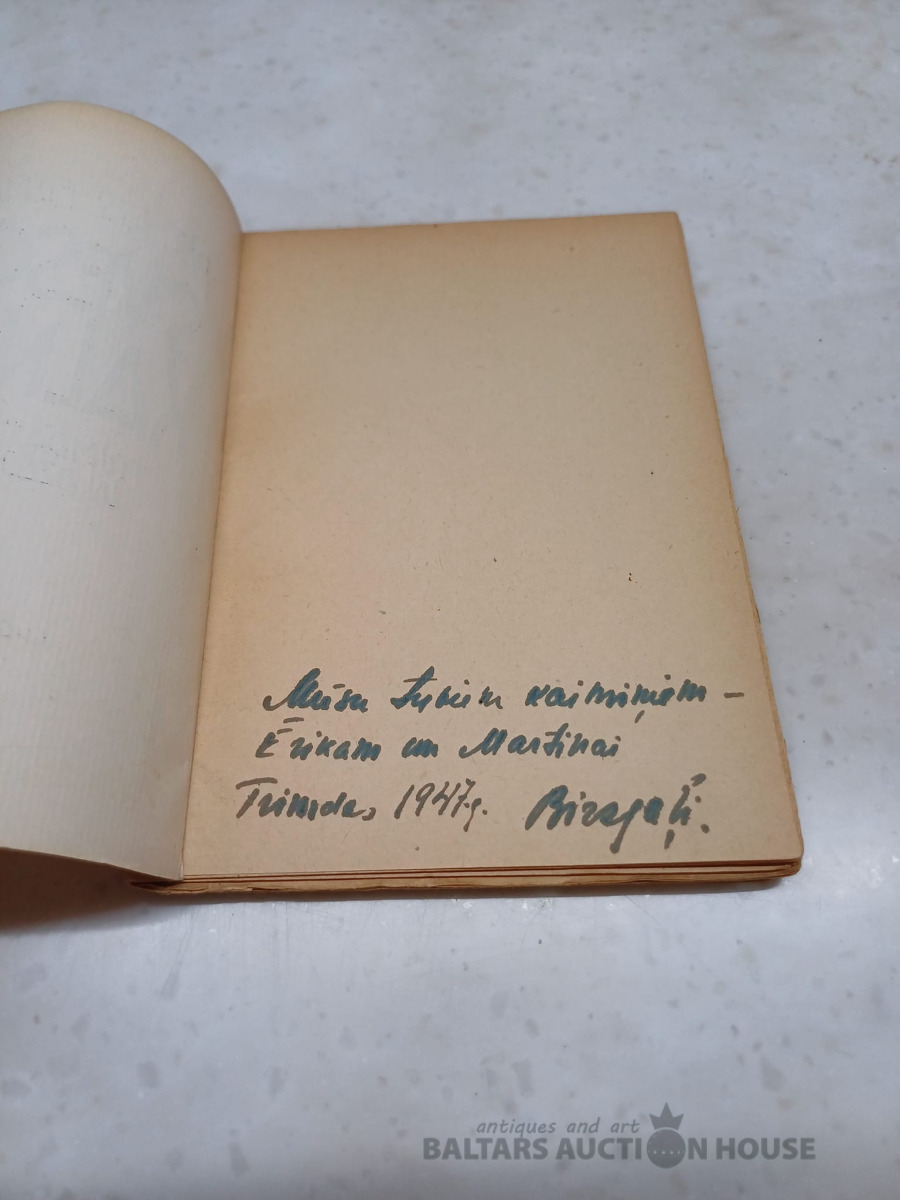 Mūsu kaimiņiem –
Ērikam un Martinai
Trimdas 1947.g.
antiques and art
BALTARS AUCTION HOUSE